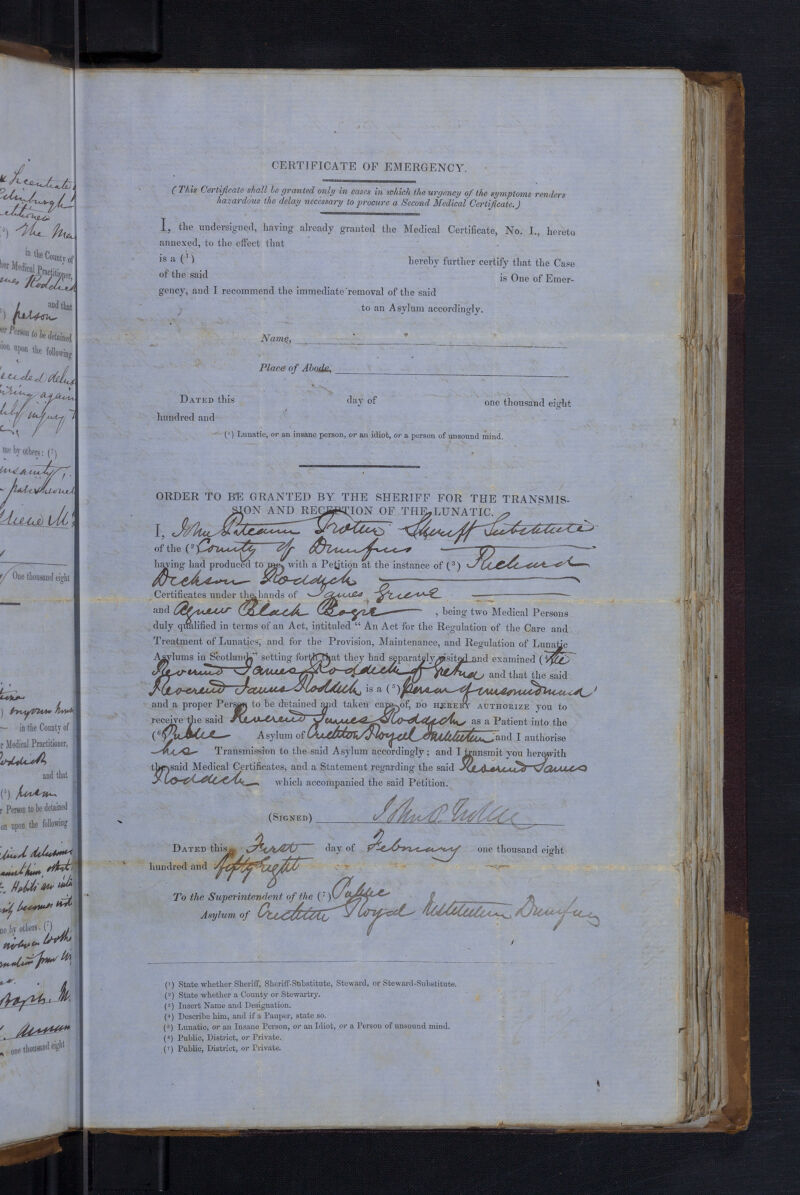 CERTIFICATE OF EMERGENCY.
(This Certificate shall be granted only in cases in which the urgency of the symptoms renders
hazardous the delay necessary to procure a Second Medical Certificate.)
I, the undersigned, having already granted the Medical Certificate, No. I., hereto
annexed, to the effect that
is a (1) hereby further certify that the Case
of the said is One of Emer-
gency, and I recommend the immediate removal of the said
to an Asylum accordingly.
Name,
Place of Abode,
DATED this day of one thousand eight
hundred and
(1) Lunatic, or an insane person, or an idiot, or a person of unsound mind.
ORDER TO BE GRANTED BY THE SHERIFF FOR THE TRANSMIS-
SION AND RECEPTION OF THE LUNATIC.
I, John Trotter Sheriff Substitute
of the (2) County of Dumfries
having had produced to me, with a Petition at the instance of (3) Richard
Dickson Roddick
Certificates under the hands of James Grieve
and Agnew Black , being two Medical Persons
duly qualified in terms of an Act, intituled "An Act for the Regulation of the Care and
Treatment of Lunatics, and for the Provision, Maintenance, and Regulation of Lunatic
Asylums in Scotland," setting forth that they had separately visited and examined (the
Reverend James Roddick of Gretna and that the said
Reverend James Roddick is a (5) person of unsound mind
and a proper Person to be detained and taken care of, DO HEREBY AUTHORIZE you to
receive the said Reverend James Roddick as a Patient into the
(6 Public Asylum of Crichton Royal Institution and I authorise
his Transmission to the said Asylum accordingly; and I transmit you herewith
the said Medical Certificates, and a Statement regarding the said Reverend James
Roddick which accompanied the said Petition.
(SIGNED) John P. Trotter
DATED this First day of February one thousand eight
hundred and fifty eight
To the Superintendent of the (7) Public
Asylum of Crichton Royal Institution Dumfries
(1) State whether Sheriff, Sheriff-Substitute, Steward, or Steward-Substitute.
(2) State whether a County or Stewartry.
(3) Insert Name and Designation.
(4) Describe him, and if a Pauper, state so.
(5) Lunatic, or an Insane Person, or an Idiot, or a Person of unsound mind.
(6) Public, District, or Private.
(7) Public, District, or Private.